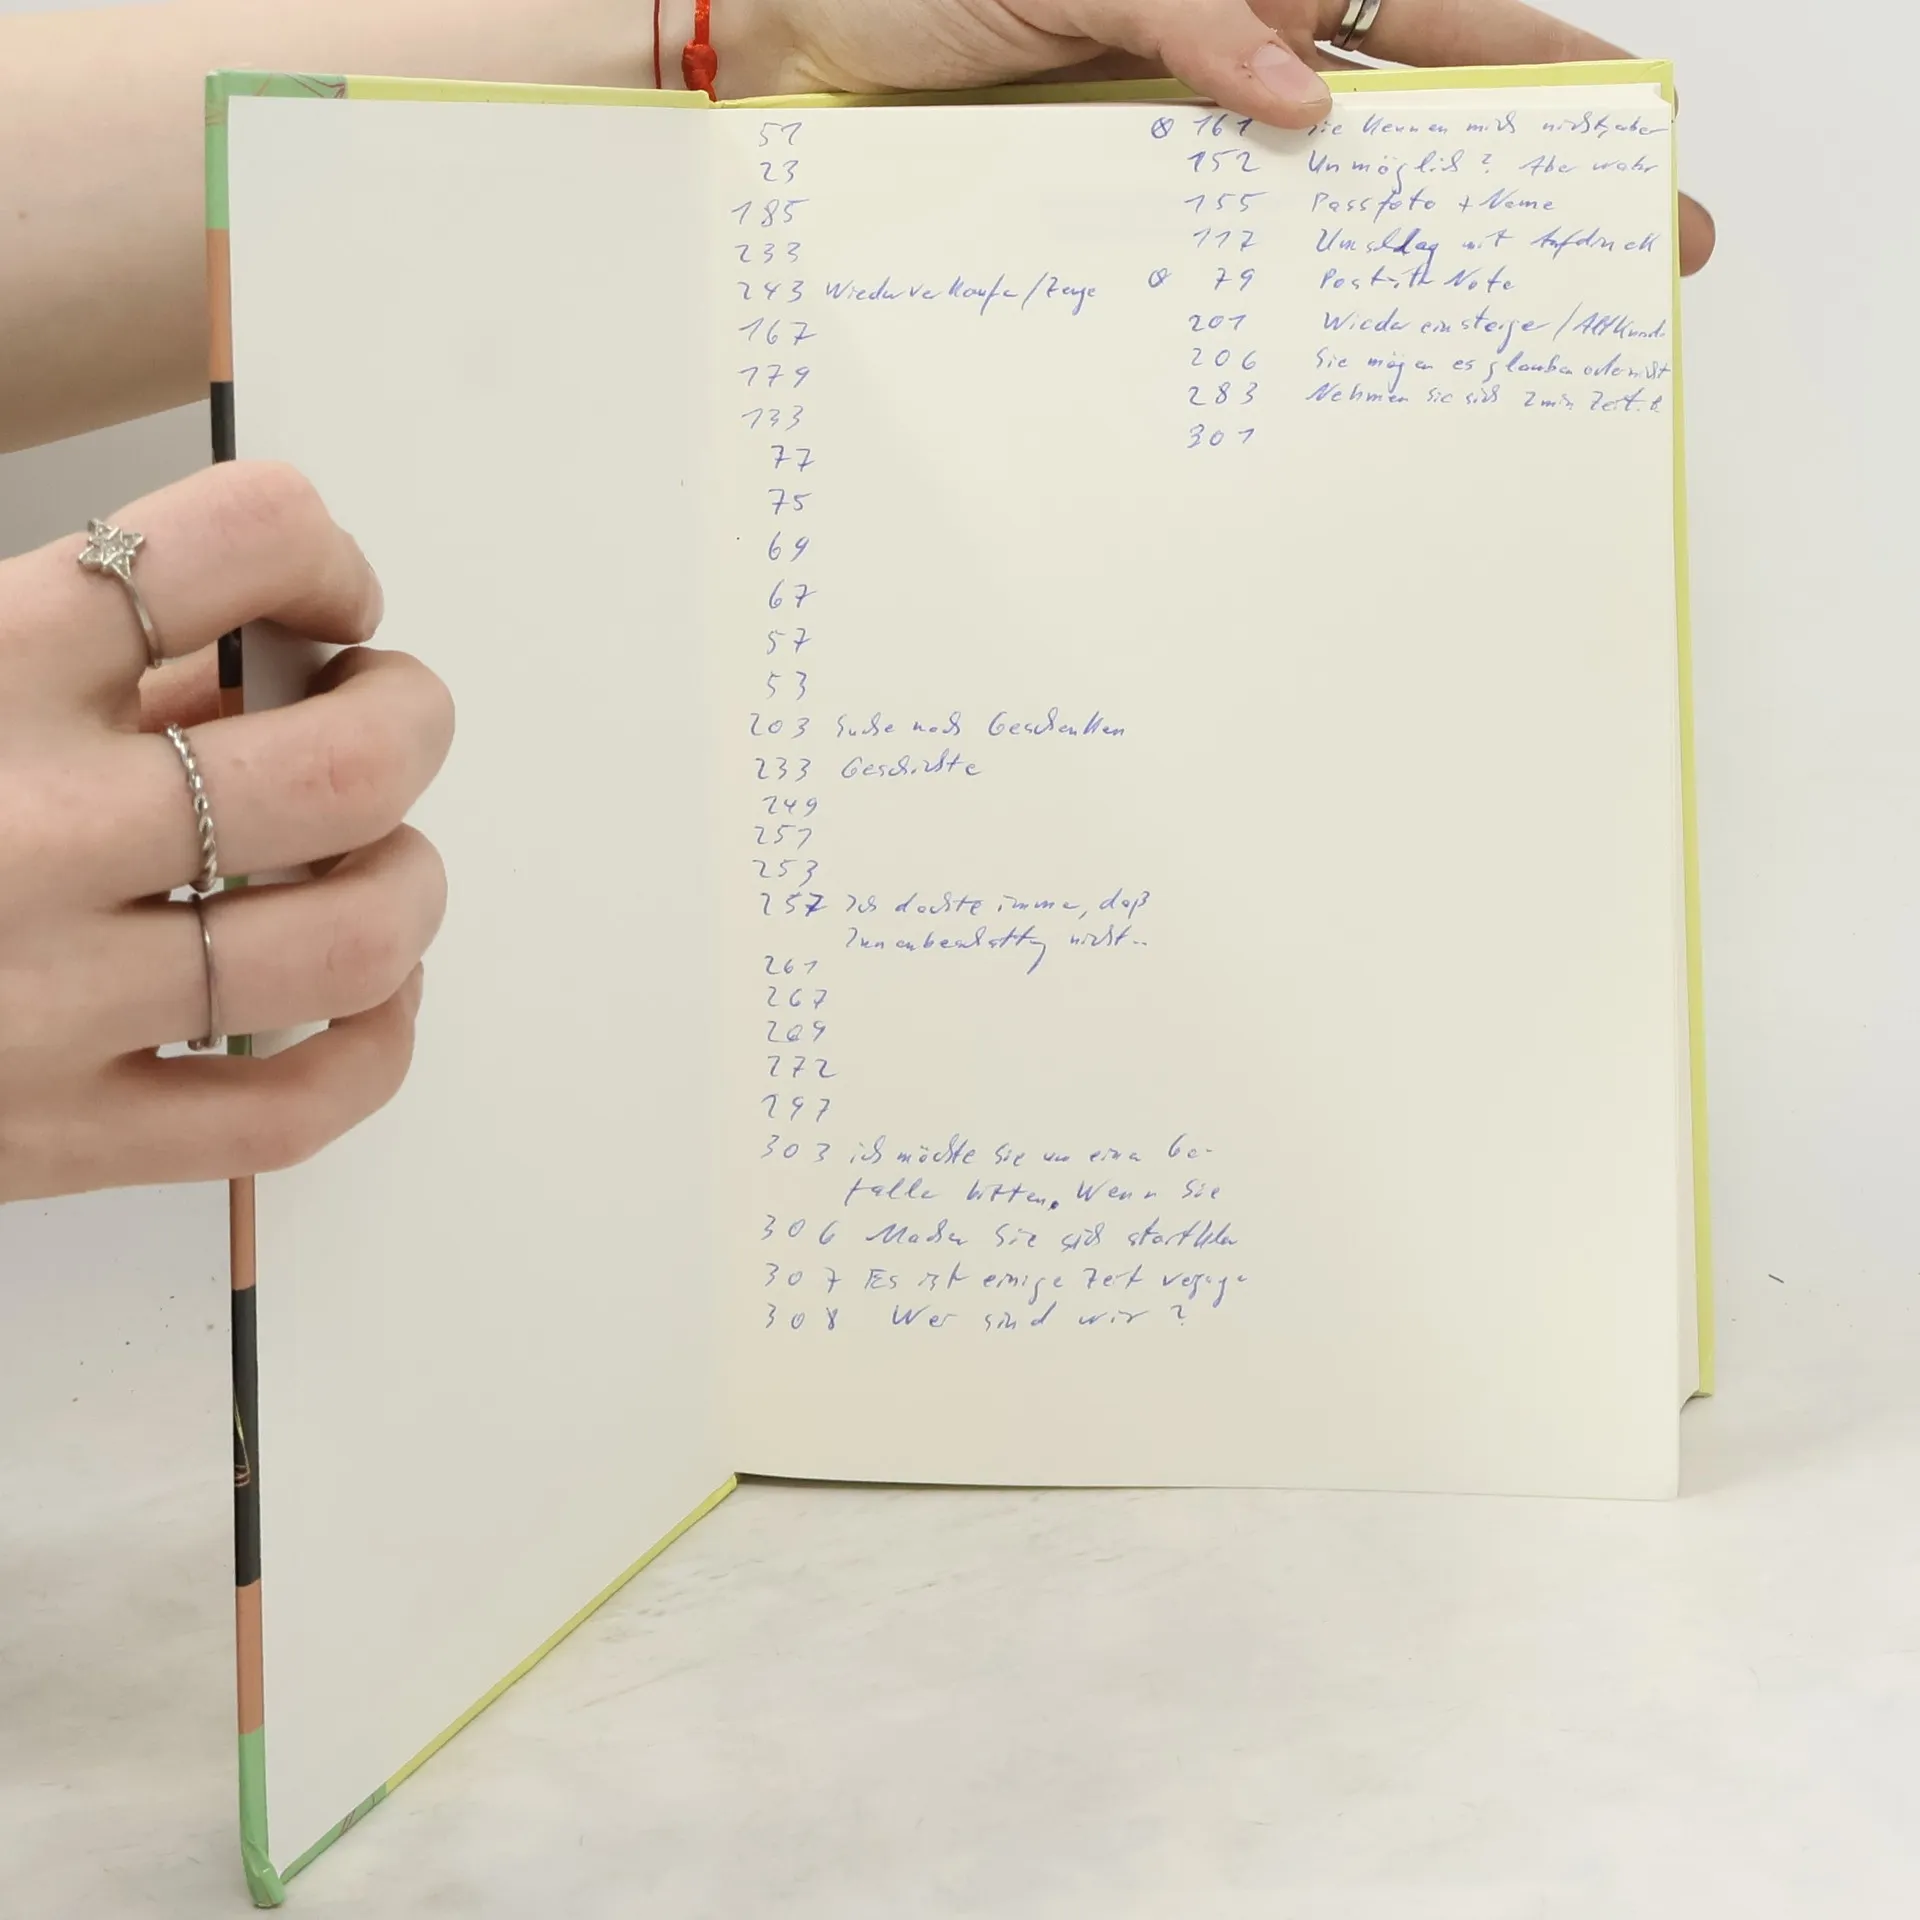 51
23
185
233
243 Wiederverkäufe/Zeuge
167
179
133
77
75
69
67
57
53
203 Suche nach Geschenken
233 Geschichte
249
251
253
257 Ich dachte immer, daß
Innenbeschattung nicht..
261
267
269
272
297
303 ich möchte Sie um einen Ge-
fallen bitten. Wenn Sie
306 Machen Sie sich startklar
307 Es ist einige Zeit
308 Wer sind wir?
161 Sie kennen mich nicht, aber
152 Unmöglich? Aber wahr
155 Passfoto + Name
117 Umschlag mit Aufdruck
79 Post-it Note
201 Wiedereinsteiger/Altkund.
206 Sie mögen es glauben oder nicht
283 Nehmen Sie sich 2 min Zeit.
301